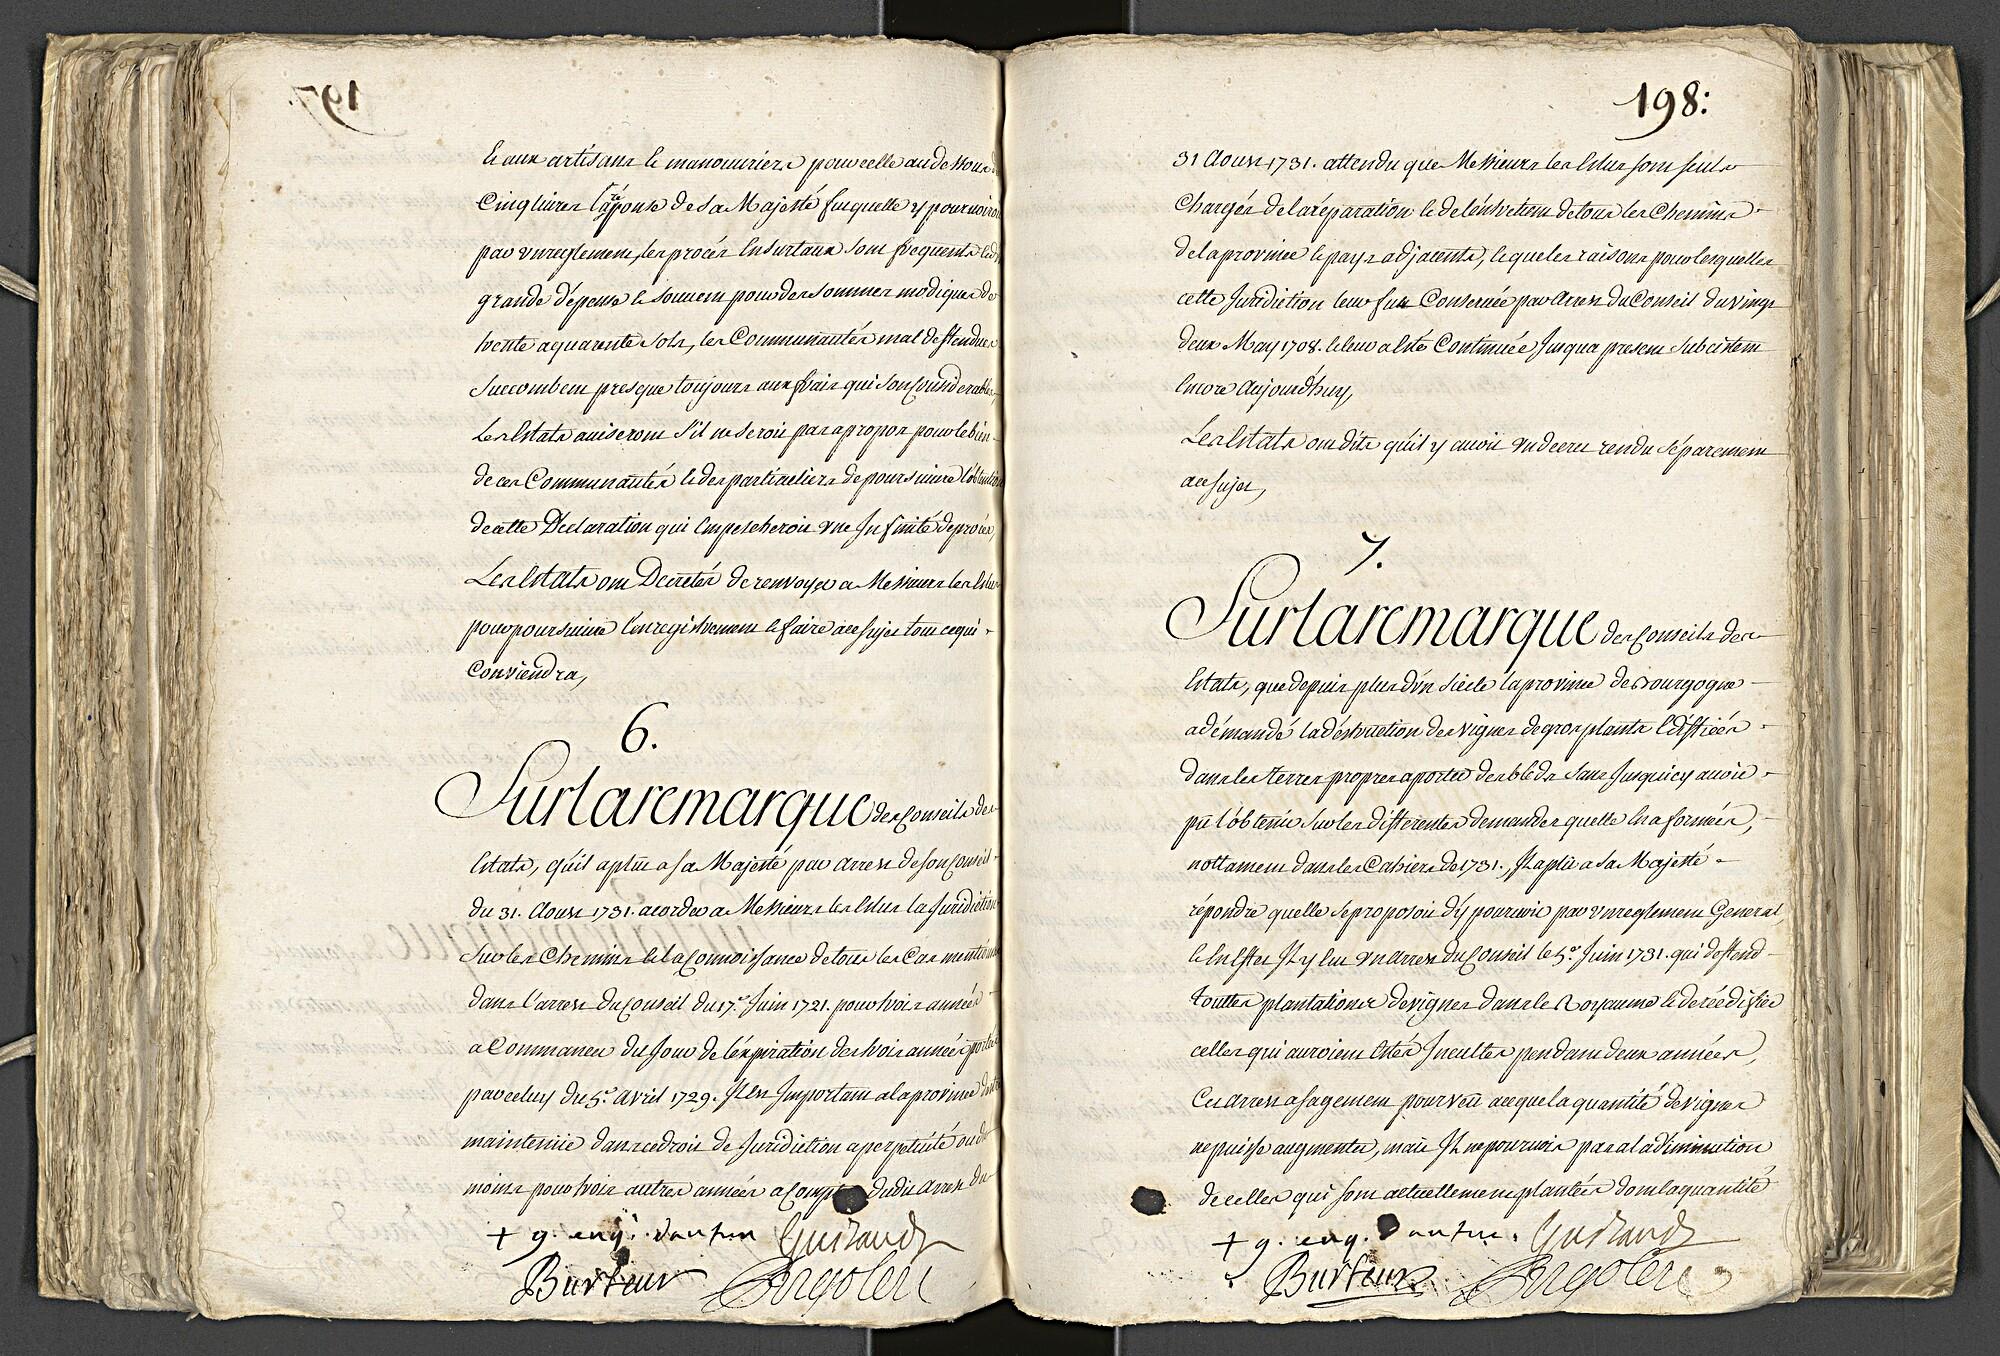 197
Et aux artisans Et manouuriers pour celle au dessous d
Cinq liures la réponse de Sa Majesté fut quelle y pouruoiroi
par vn reglement, les procés En Surtaux sont frequents
grande dépense Et souuent pour des sommes modiques de
trente a quarente sols, les Communautés mal deffendues
succombent presque toujours aux frais qui sont Considerables,
Les Estats auiseront s'il ne seroit pas apropos pour le bien
de ces Communautés Et des particuliers de poursuiure l'obtention
de cette Déclaration qui Empescheroit vne Infinité de procés,
Les Estats ont Decretés de renvoyer a Messieurs les Elus
pour poursuiure l'enregistrement Et faire ace sujet tout ce qui
Conviendra,
6.
Sur la remarque des Conseils des
Estats, quil a plu a sa Majesté par arrest de son Conseil
du 31. Aoust 1731. acorder a Messieurs les Elus la Juridiction
sur les Chemins Et la Connoissance de tous les Cas mentionnés
dans l'arrest du Conseil du 17.e Juin 1721. pour trois années
a Commancer du Jour de l'éxpiration des trois années portées
par celuy du 5.e Avril 1729. Il Est Important a la province d'estre
maintenüe dans ce droit de Juridiction a perpétuité ou du
moins pour trois autres années a Compter dudit Arrest du
+ g. evêq. d'autun Guiraud
Burteur Gorgoleri
198:
31 Aoust 1731. attendu que Messieurs les Elus sont seuls
Chargés de la réparation Et de l'éntretien de tous les Chemins
de la province Et pays adjacents, Et que les raisons pour lesquelles
cette Juridiction leur fut Conseruée par Arrest du Conseil du vingt
deux May 1708. Et leur a Esté Continuée Jusqua present subcistent
Encore Aujourd'huy,
Les Estats ont dits qu'il y auoit vn decret rendu séparement
ace sujet,
7.
Sur la remarque des Conseils des
Estats, que depuis plus d'vn siécle la province de Bourgogne
a démandé la déstruction des vignes de gros plants Edifficés
dans les terres propres a porter des bleds sans Jusquicy auoir
pû l'obtenir sur les differentes demandes quelle En a formées,
nottament dans les Cahiers de 1731., Il a plu a Sa Majesté
répondre quelle se proposoit d'y pouruoir par vn reglement General,
Et En Effet Il y Eut vn arrest du Conseil le 5.e Juin 1731. qui deffend
touttes plantations de vignes dans le Royaume Et de réédiffier
celles qui auroient Estés Incultes pendant deux années,
Cet Arrest a sagement pourvû ace que la quantité de vignes
ne puisse augmenter, mais Il ne pouruoit pas a la diminution
de celles qui sont actuellement plantées dont la quantité
+ g. evêq. d'autun. Guiraud
Burteur Gorgoleri